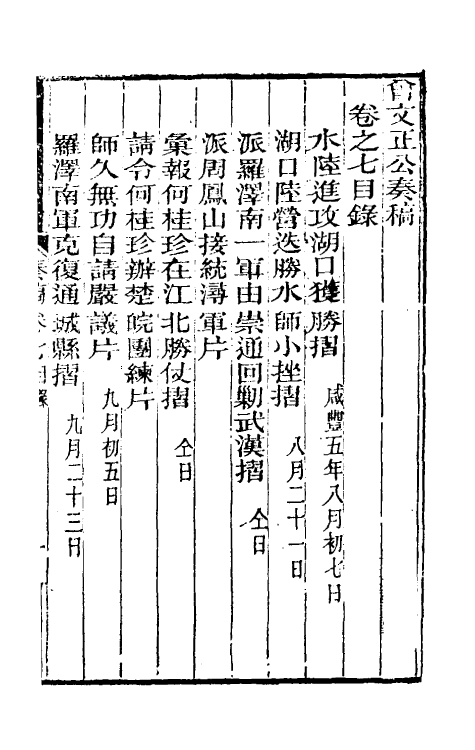 曾文正公奏稿
卷之七目錄
水陸進攻湖口獲勝摺 咸豐五年八月初七日
湖口陸營迭勝水師小挫摺 八月二十一日
派羅澤南一軍由崇通回剿武漢摺 仝日
派周鳳山接統潯軍片
彙報何桂珍在江北勝仗摺 仝日
請令何桂珍辦楚皖團練片
師久無功自請嚴議片 九月初五日
羅澤南軍克復通城縣摺 九月二十三日
奏稿卷七目錄 一